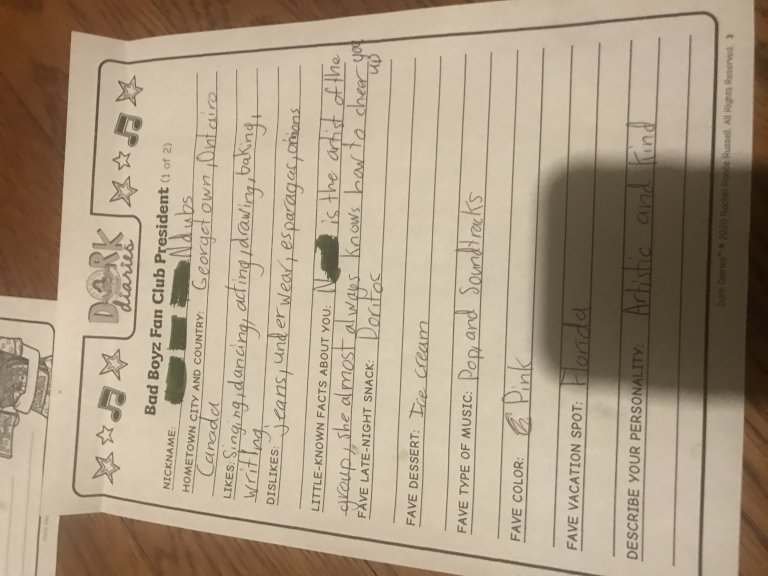 DORK
diaries
Bad Boyz Fan Club President (1 of 2)
NICKNAME: Ndubs
HOMETOWN CITY AND COUNTRY: Georgetown, Ontairo
Canada
LIKES: Singing, dancing, acting, drawing, baking,
writing
DISLIKES: jeans, underwear, esparagas, onions
LITTLE-KNOWN FACTS ABOUT YOU: N is the artist of the
group, she almost always knows how to chear you
up
FAVE LATE-NIGHT SNACK: Doritos
FAVE DESSERT: Ice cream
FAVE TYPE OF MUSIC: Pop, and Soundtracks
FAVE COLOR: Pink
FAVE VACATION SPOT: Florida
DESCRIBE YOUR PERSONALITY: Artistic and kind
Dork Diaries™ © 2020 Rachel Renée Russell. All Rights Reserved. 3